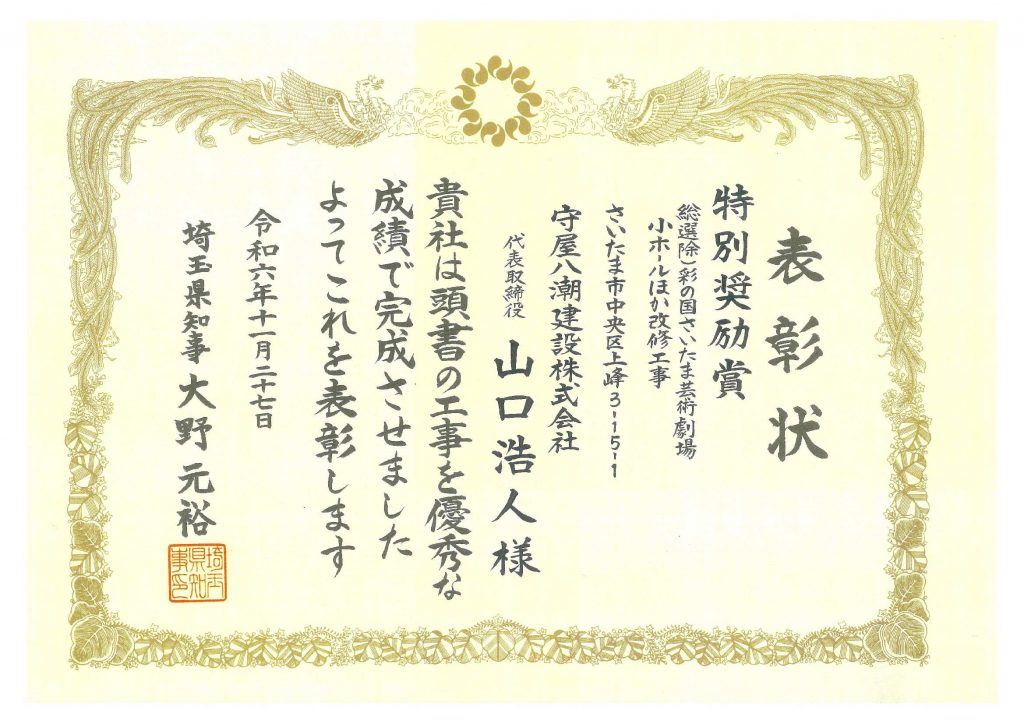 表彰状
特別奨励賞
総選除)彩の国さいたま芸術劇場
小ホールほか改修工事
さいたま市中央区上峰3-15-1
守屋八潮建設株式会社
代表取締役 山口浩人様
貴社は頭書の工事を優秀な
成績で完成させました
よってこれを表彰します
令和六年十一月二十七日
埼玉県知事 大野元裕
埼玉
県知
事之印